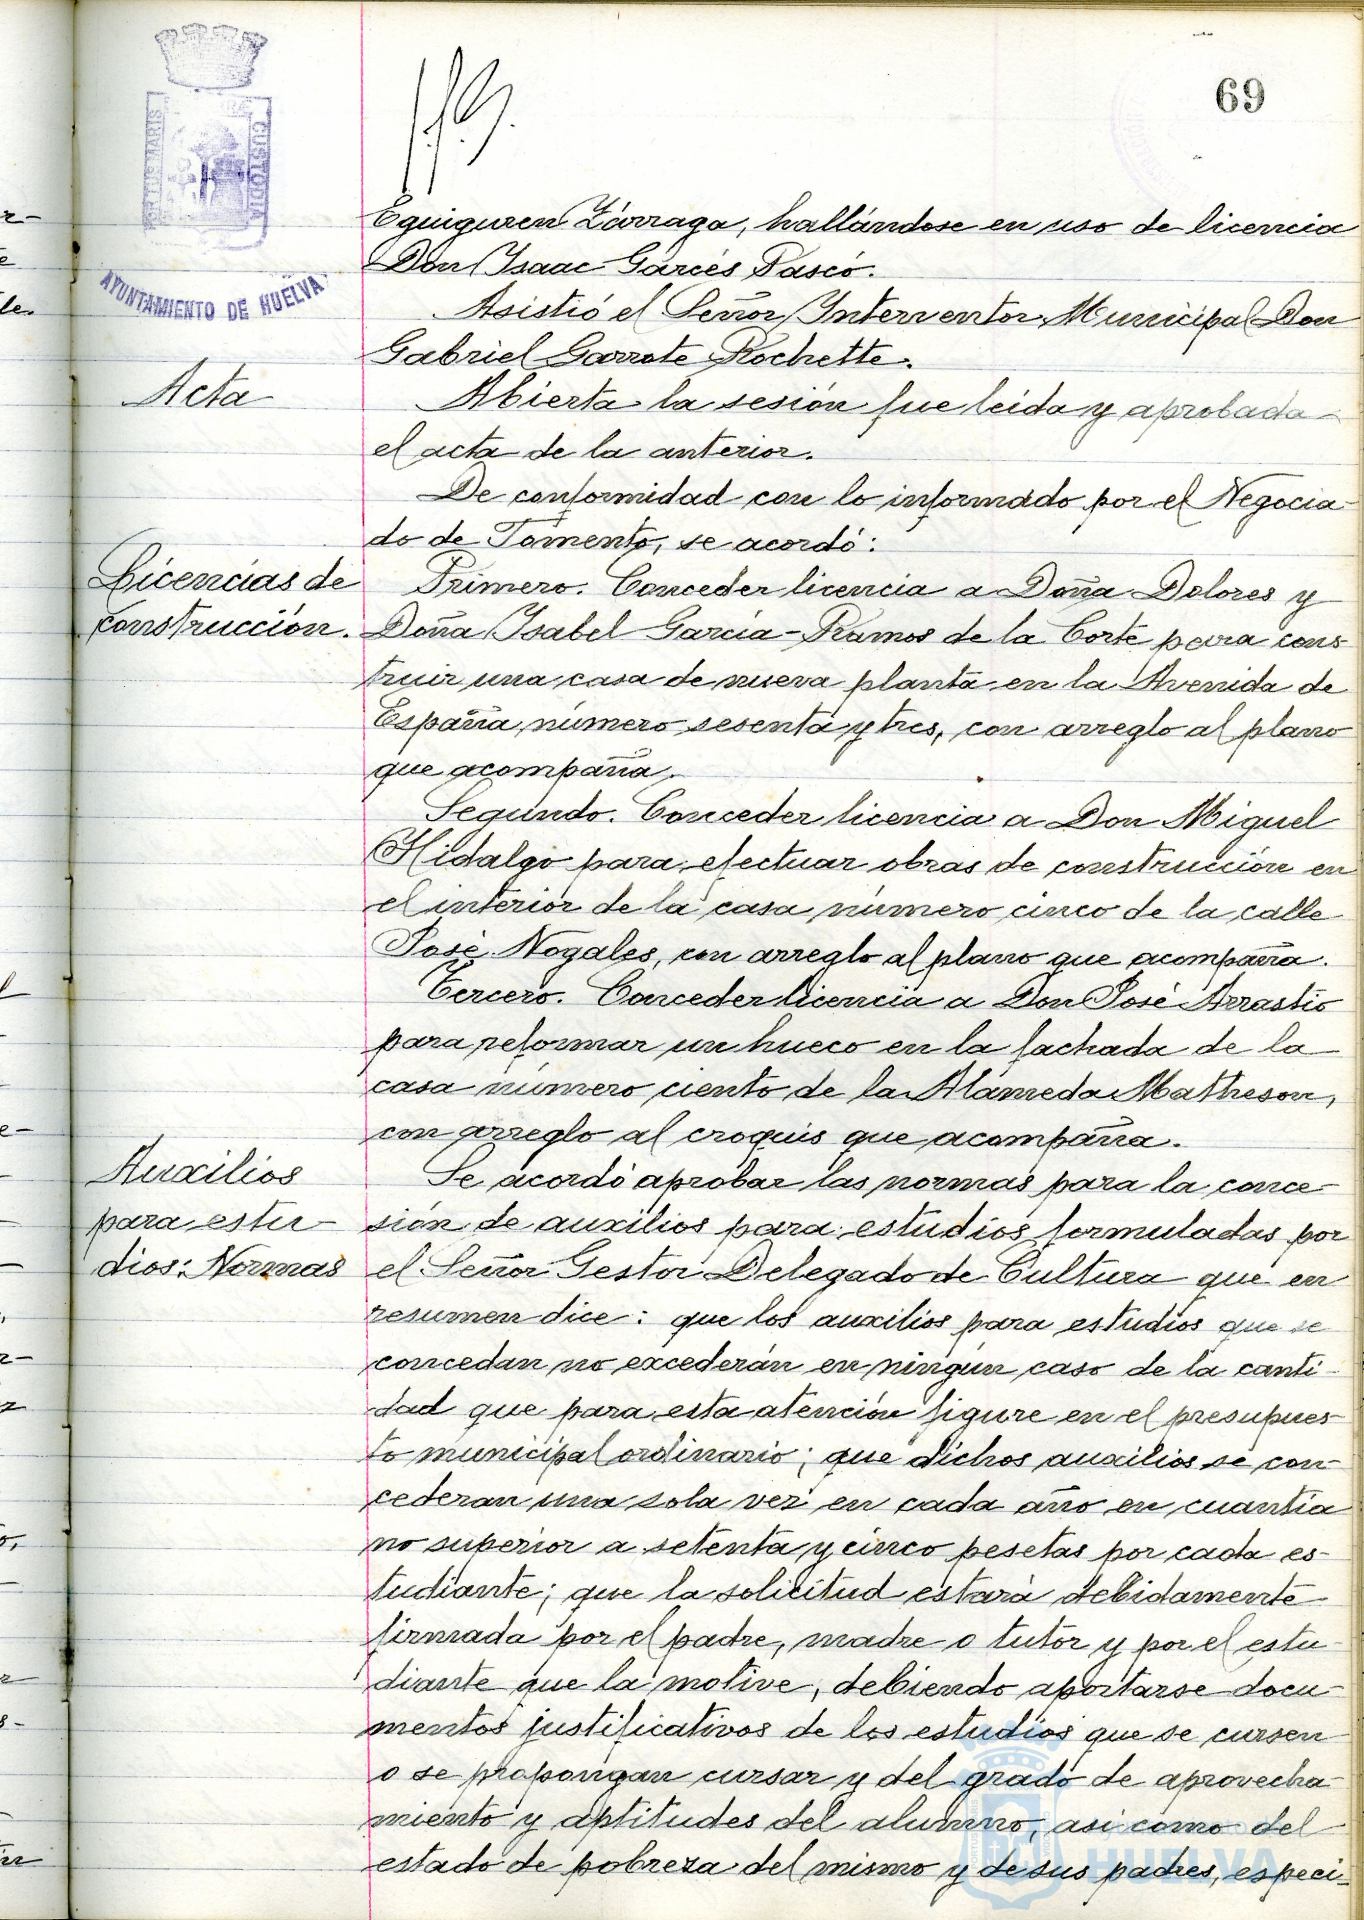 69
PORTUS MARIS
CUSTODIA
AYUNTAMIENTO DE HUELVA
Eguiguren Zárraga, hallándose en uso de licencia
Don Isaac Garcés Pascó.
Asistió el Señor Interventor Municipal Don
Gabriel Garrote Rochette.
Acta
Abierta la sesión fue leida y aprobada
el acta de la anterior.
De conformidad con lo informado por el Negocia-
do de Fomento, se acordó:
Licencias de
construcción.
Primero. Conceder licencia a Doña Dolores y
Doña Isabel García-Ramos de la Corte para cons-
truir una casa de nueva planta en la Avenida de
España número sesenta y tres, con arreglo al plano
que acompaña.
Segundo. Conceder licencia a Don Miguel
Hidalgo para efectuar obras de construcción en
el interior de la casa número cinco de la calle
José Nogales, con arreglo al plano que acompaña.
Tercero. Conceder licencia a Don José Arrastio
para reformar un hueco en la fachada de la
casa número ciento de la Alameda Matheson,
con arreglo al croquis que acompaña.
Auxilios
para estu-
dios: Normas
Se acordó aprobar las normas para la conce-
sión de auxilios para estudios formuladas por
el Señor Gestor Delegado de Cultura que en
resumen dice: que los auxilios para estudios que se
concedan no excederán en ningún caso de la canti-
dad que para esta atención figure en el presupues-
to municipal ordinario; que dichos auxilios se con-
cederan una sola vez en cada año en cuantía
no superior a setenta y cinco pesetas por cada es-
tudiante; que la solicitud estará debidamente
firmada por el padre, madre o tutor y por el estu-
diante que la motive, debiendo aportarse docu-
mentos justificativos de los estudios que se cursen
o se propongan cursar y del grado de aprovecha-
miento y aptitudes del alumno, asi como del
estado de pobreza del mismo y de sus padres, especi-
HUELVA